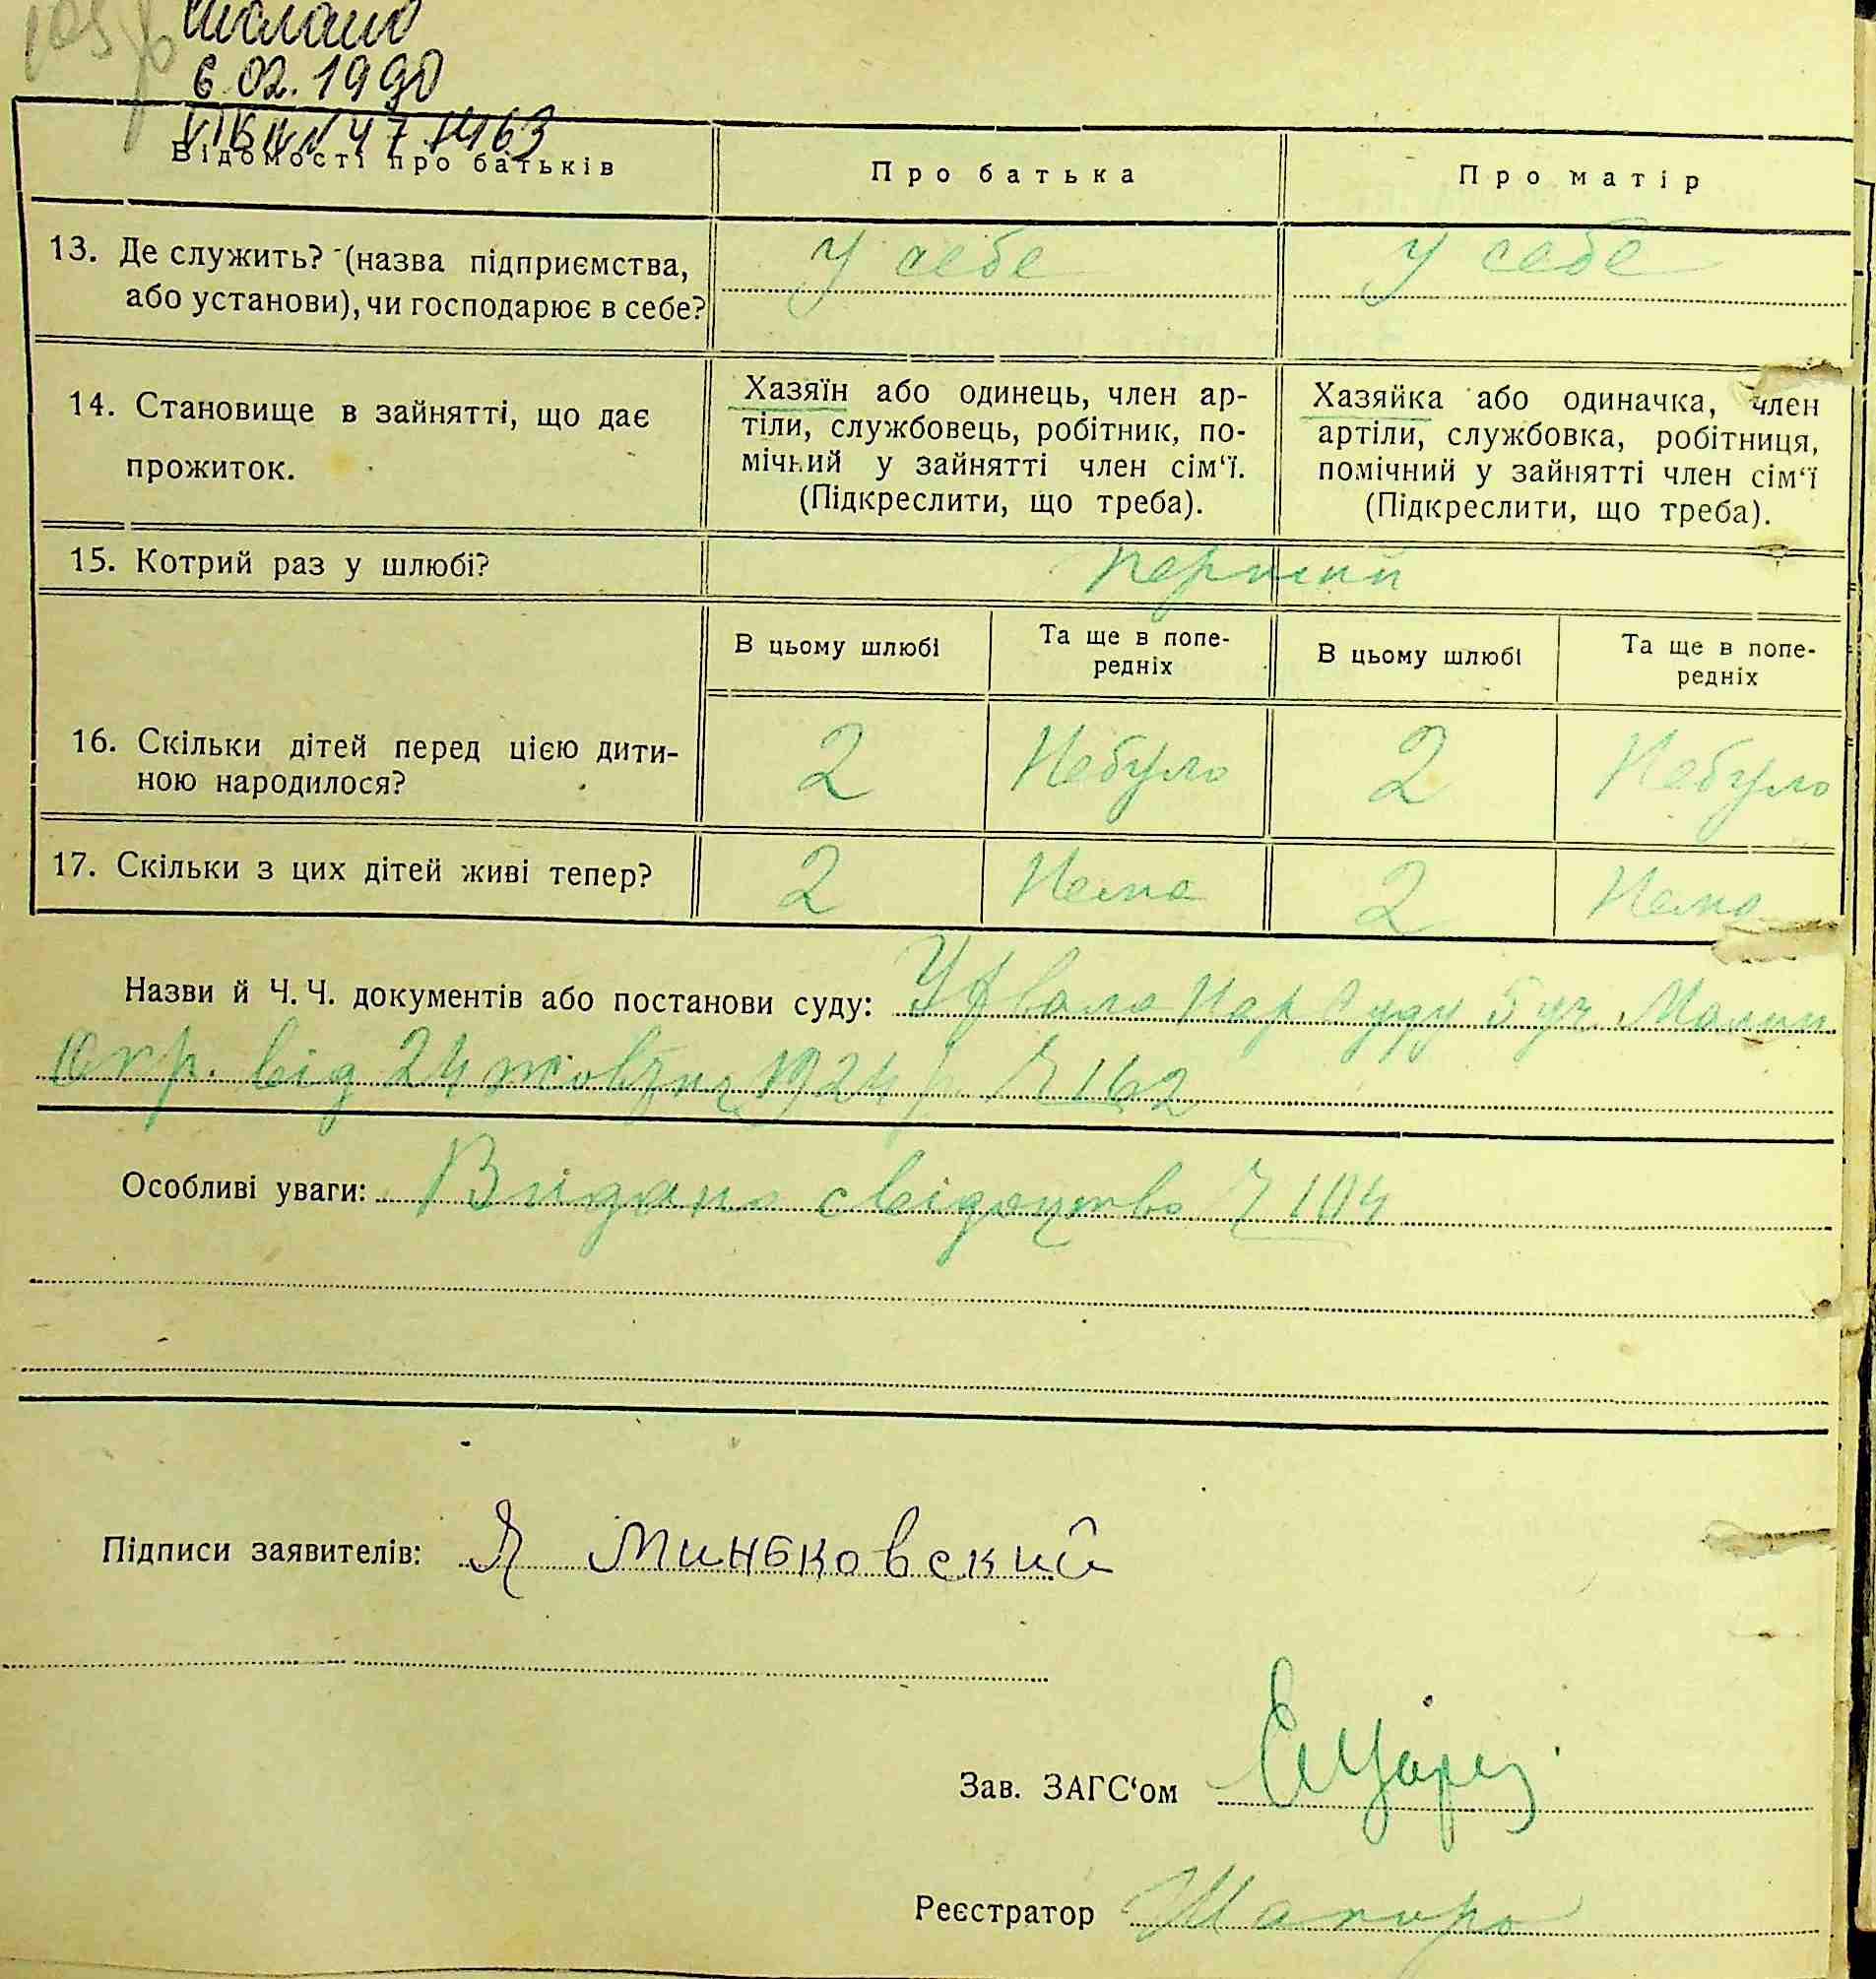 6.02.1990
Відомості про батьків
Про батька
Про матір
13. Де служить? (назва підприємства, або установи), чи господарює в себе?
У себе
У себе
14. Становище в зайнятті, що дає прожиток.
Хазяїн або одинець, член ар-
тіли, службовець, робітник, по-
мічний у зайнятті член сім‘ї.
(Підкреслити, що треба).
Хазяйка або одиначка, член
артіли, службовка, робітниця,
помічний у зайнятті член сім‘ї
(Підкреслити, що треба).
15. Котрий раз у шлюбі?
перший
В цьому шлюбі
Та ще в попе-
редніх
В цьому шлюбі
Та ще в попе-
редніх
16. Скільки дітей перед цією дити-
ною народилося?
2
Небуло
2
Небуло
17. Скільки з цих дітей живі тепер?
2
Нема
2
Нема
Назви й Ч. Ч. документів або постанови суду: Ухвала Нар Суду 5 уч. Малин
Окр. від 24 жовтня 1924 р Ч 162
Особливі уваги: Видано свідоцтво Ч 104
Підписи заявителів: Миньковский
Зав. ЗАГС‘ом
Реєстратор Шапиро